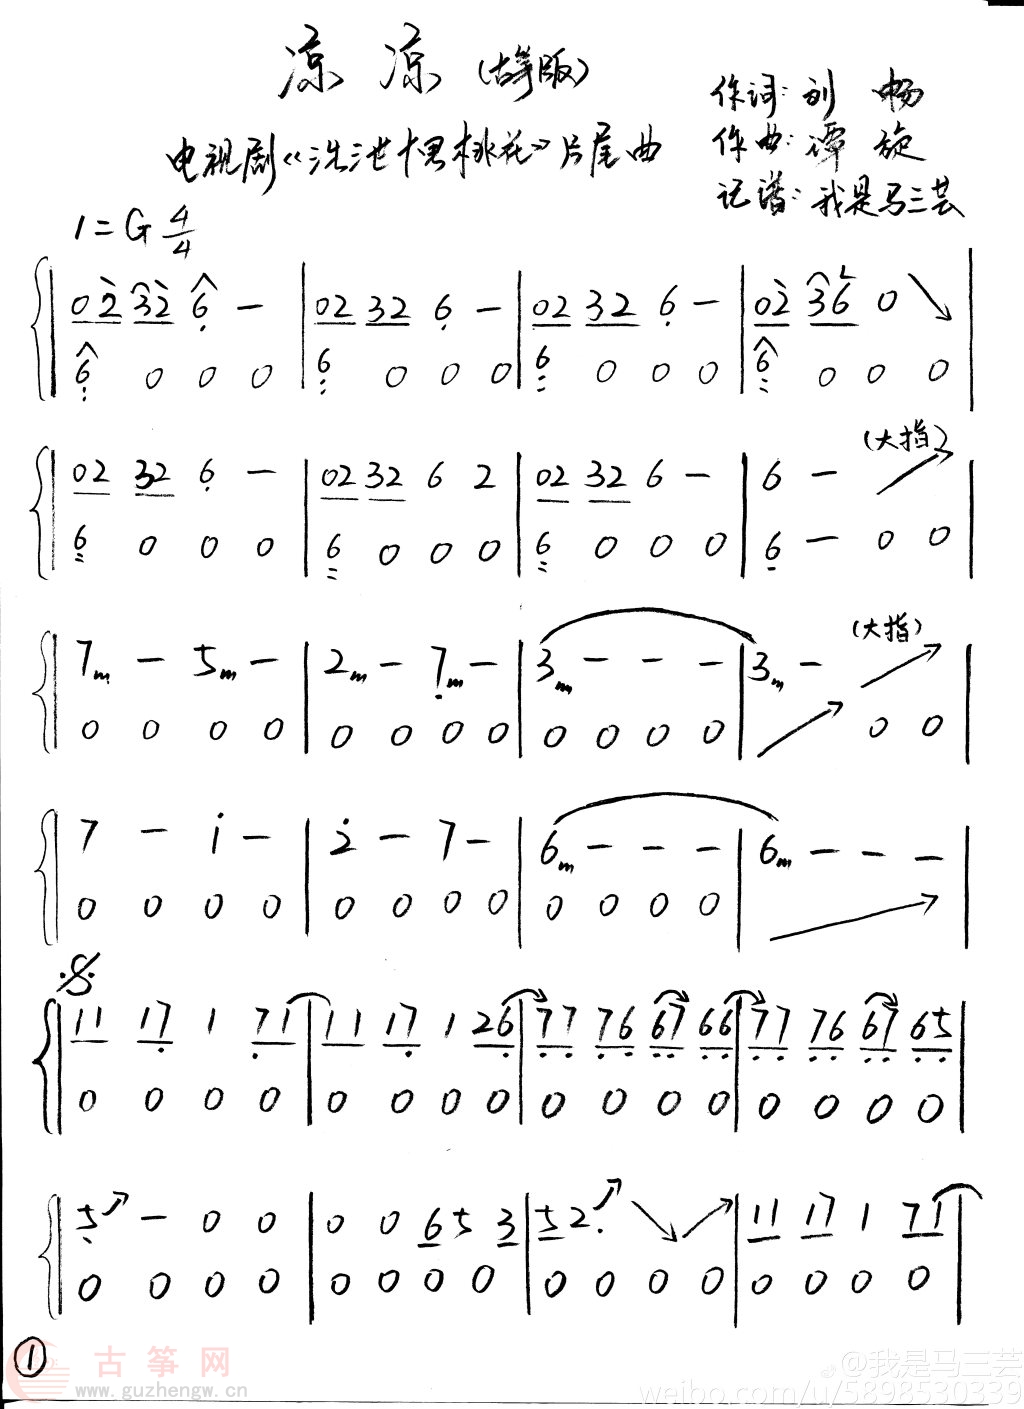 凉 凉 (古筝版)
作词: 刘 畅
电视剧《三生三世十里桃花》片尾曲
作曲: 谭 旋
记谱: 我是马三芸
1=G 4/4
02 32 6 - | 02 32 6 - | 02 32 6 - | 02 36 0 ↘ |
6 0 0 0 | 6 0 0 0 | 6 0 0 0 | 6 0 0 0 |
(大指)
02 32 6 - | 02 32 6 2 | 02 32 6 - | 6 - ↗ |
6 0 0 0 | 6 0 0 0 | 6 0 0 0 | 6 - 0 0 |
(大指)
7m - 5m - | 2m - 7m - | 3m - - - | 3m - ↗ |
0 0 0 0 | 0 0 0 0 | 0 0 0 0 | ↗ 0 0 |
7 - i - | 2 - 7 - | 6m - - - | 6m - - - |
0 0 0 0 | 0 0 0 0 | 0 0 0 0 | ↗ |
11 17 1 71 | 11 17 1 26 | 77 76 67 66 | 77 76 67 65 |
0 0 0 0 | 0 0 0 0 | 0 0 0 0 | 0 0 0 0 |
5↗ - 0 0 | 0 0 65 3 | 52. ↗ ↘ ↗ | 11 17 1 71 |
0 0 0 0 | 0 0 0 0 | 0 0 0 0 | 0 0 0 0 |
①
古筝网
www.guzhengw.cn
@我是马三芸
weibo.com/u/5898530339